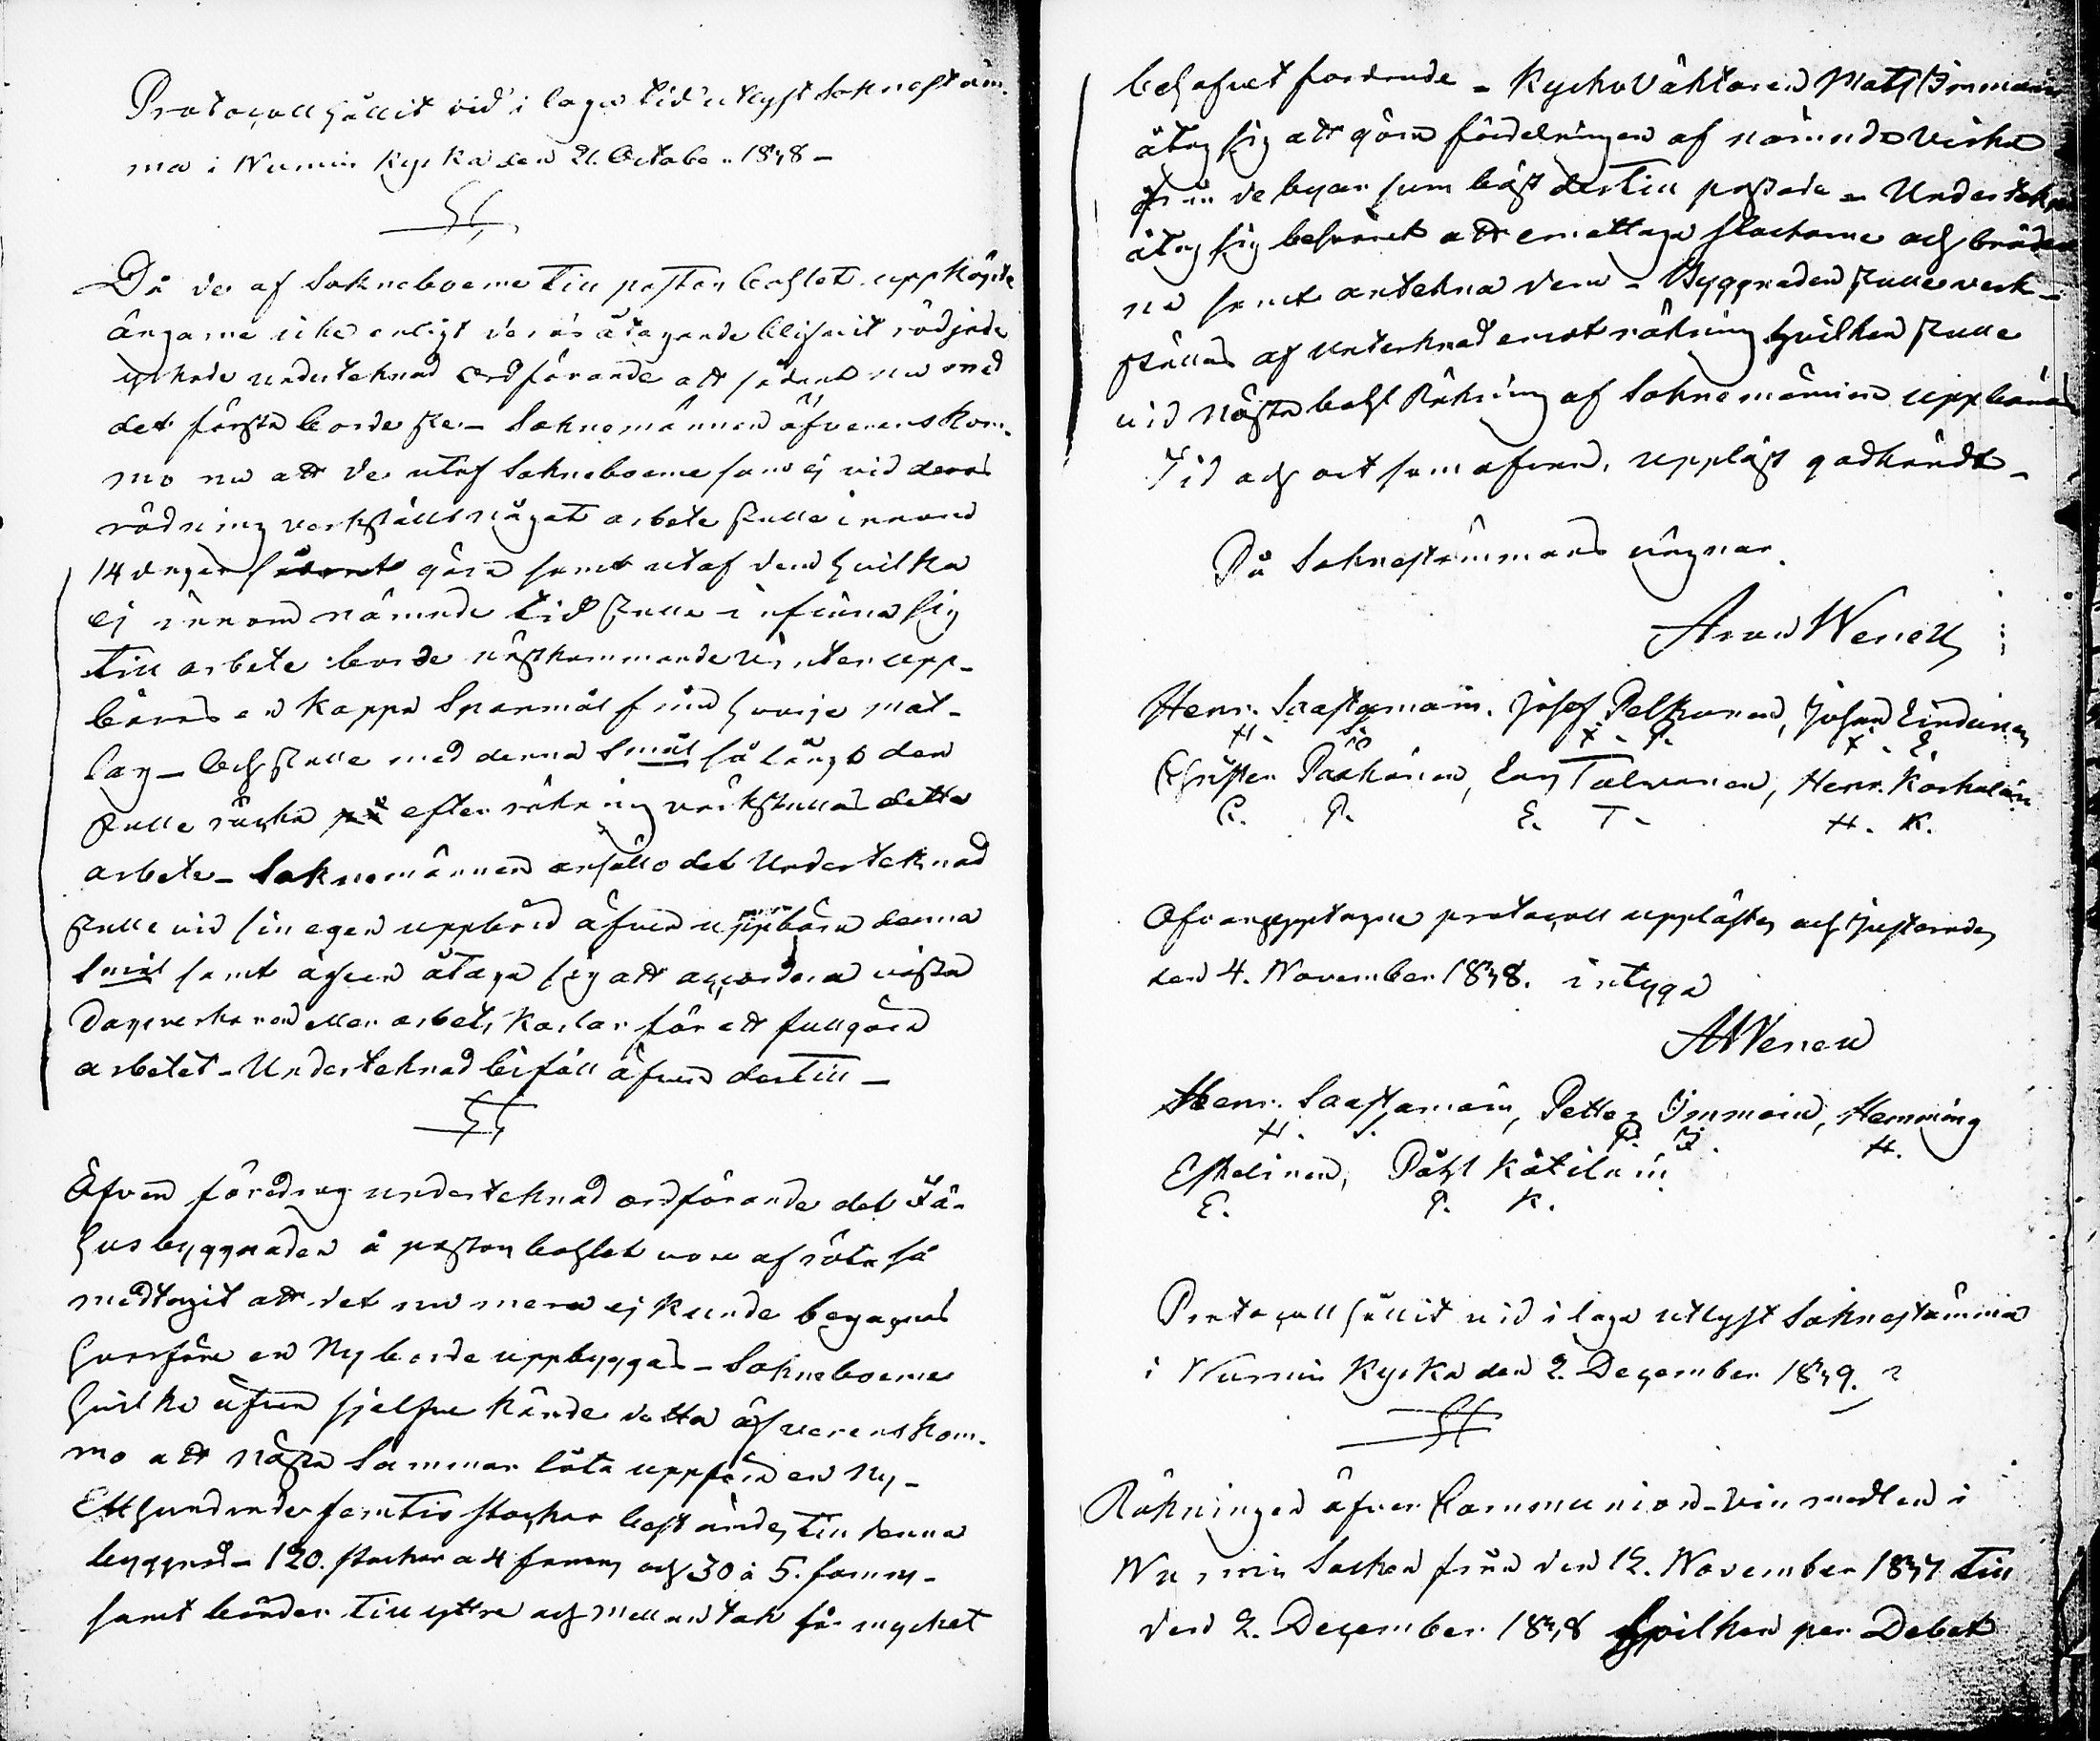 Protocoll hållit vid i laga tid utlyst Soknestäm-
ma i Nurmis Kyrka den 21 October 1838 -
§1
Då de af Sokneboerne till pastors bohlet uppköpte
ängarne icke enligt deras åtagande blifvit rödjade
yrkade undertecknad ordförande att sådant nu med
det första borde ske - Soknemännen öfverenskom-
mo nu att de utaf Sokneboerne som ej vid deras
rödning verkställt något arbete skulle innom
14 dagar sådant göra samt utaf dem hvilka
ej innom nämnde tid skulle infinna sig
till arbete borde nästkommande vinter upp-
bäras en kappa Spanmål från hvarje mat-
lag - Och skulle med denna Smål så långt den
skulle räcka efter räkning värkställas detta
arbete - Soknemännen anhöllo det Undertecknad
skulle vid sin egen uppbörd äfven uppbära denna
Smål samt äfven åtaga sig att accordera vissa
Dagsverkare eller arbets Karlar för att fullgöra
arbetet - Undertecknad biföll äfven dertill -
§2
Äfven föredrog undertecknad ordförande det Fä-
husbyggnaden å pastors bohlet vore af röta så
medtagit att det nu mera ej kunde begagnas
hvarföre en Ny borde uppbyggas - Sokneboerne
hvilka äfven sjelfve kände detta öfverenskom-
mo att nästa Sommar låta uppföra en Ny -
Etthundrade femtio stockar bestämdes till denna
byggnad - 120. stockar a 4 famns och 30 à 5. famns -
samt bräder till yttre och mellantak för mycket
behofvet fordrade - Kyrko Väktaren Mats Immoin
åtog sig att göra fördelningen af nämnde virke
från de byar som bäst dertill passade - Undertecknad
åtog sig besväret att emottaga stockarne och bräder-
na samt anteckna dem - Byggnaden skulle verk-
ställas af Undertecknad emot räkning hvilken skulle
vid nästa bohl Räkning af Soknemännen uppbäras
Tid och ort som ofvan, uppläst godkändt -
På Sokneståmmans vägnar.
Aron Wenell
Henr. Saastamoin. Josef Pelkonen, Johan Lindunen
H. S. J. P. J. L.
Christer Pääkönen, Eric Tolvanen, Henr. Korhoin
C. P. E. T. H. K.
Ofvanupptagne protocoll upplästes och justerades
den 4. November 1838. intyga
AWenell
Henr. Saastamoin, Petter Immoin, Hemming
H. S. P. I. H.
Eskelinen, Påhl Kötilain
E. P. K.
Protocoll hållit vid i laga utlyst Soknestämma
i Nurmis Kyrka den 2. December 1839.
§1
Räkningen öfver Communion-vin medlen i
Nurmis Socken från den 12. November 1837 till
den 2. December 1838 hvilken per Debet